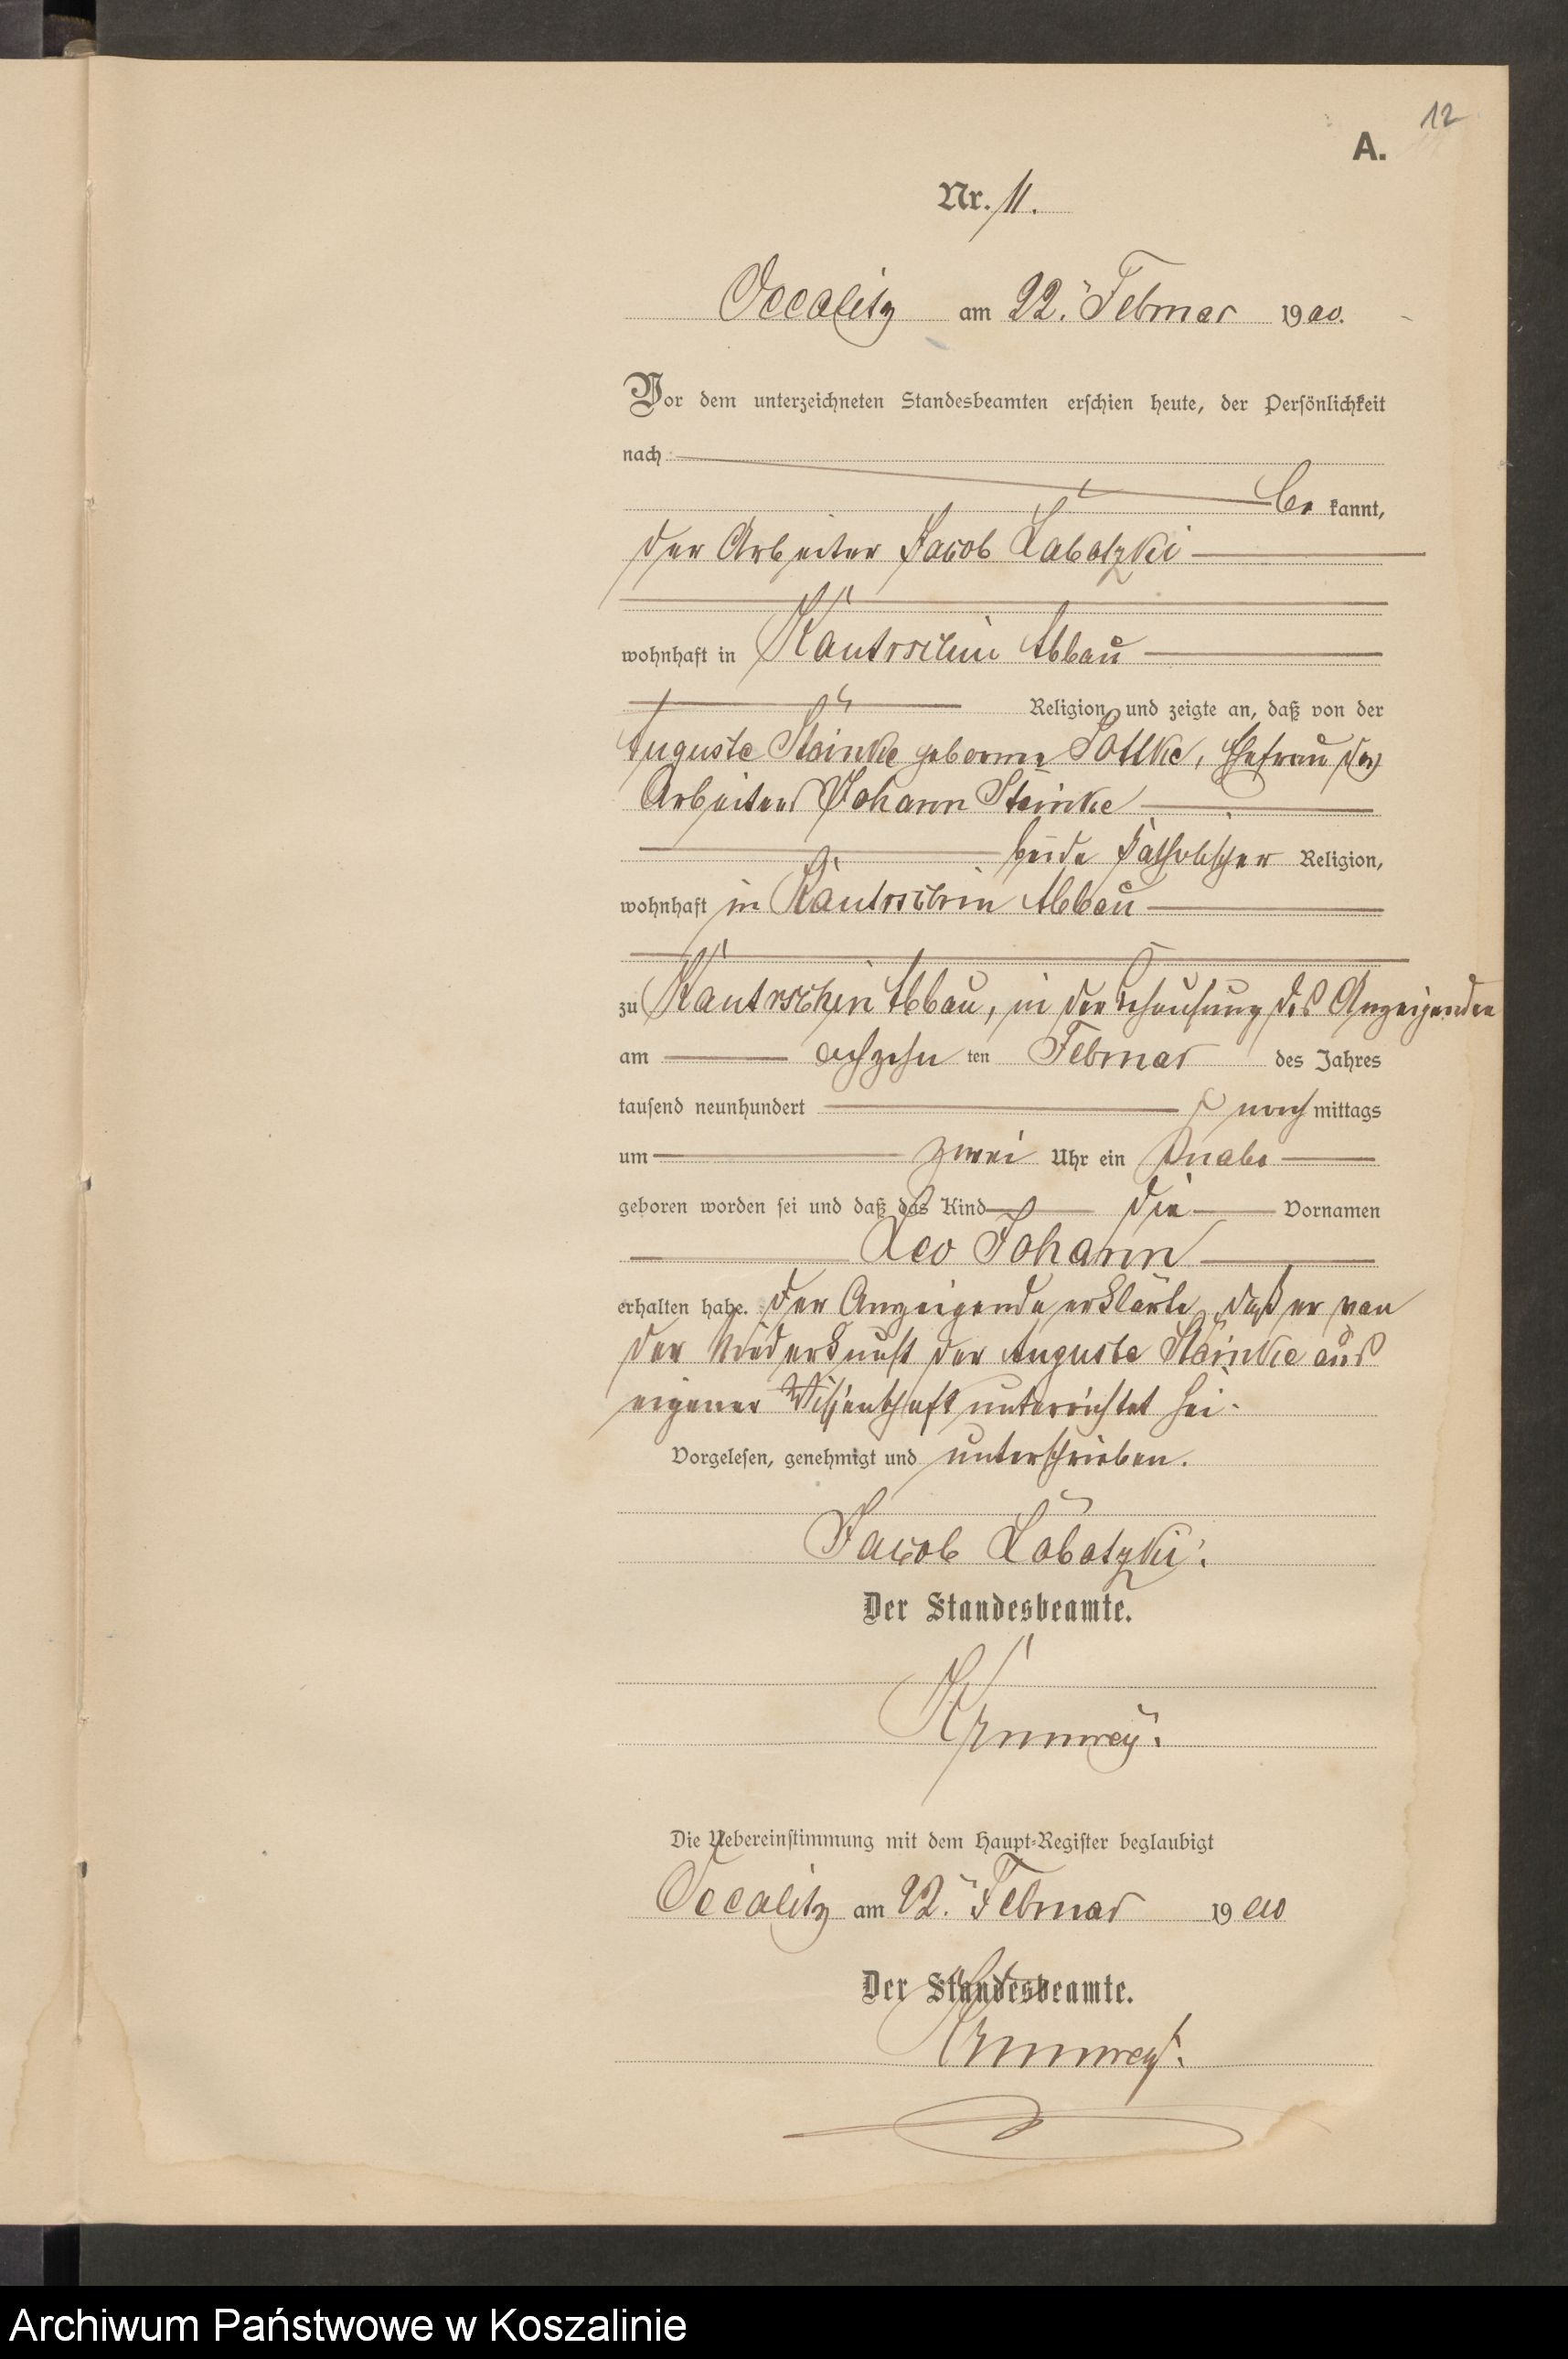 12
A.
Nr. 11.
Occalitz am 22. Februar 1900.
Vor dem unterzeichneten Standesbeamten erschien heute, der Persönlichkeit
nach
be kannt,
der Arbeiter Jacob Labotzki
wohnhaft in Kantrschin Abbau
Religion, und zeigte an, daß von der
Auguste Steinke geborene Pottke, Ehefrau des
Arbeiters Johann Steinke
beide katholischer Religion,
wohnhaft in Kantrschin Abbau
zu Kantrschin Abbau, in der Behausung des Anzeigenden
am achzehn ten Februar des Jahres
tausend neunhundert nach mittags
um zwei Uhr ein Knabe
geboren worden sei und daß das Kind die Vornamen
Leo Johann
erhalten habe. Der Anzeigende erklärte, daß er von
der Niederkunft der Auguste Steinke aus
eigener Wissenschaft unterrichtet sei.
Vorgelesen, genehmigt und unterschrieben.
Jacob Labotzki.
Der Standesbeamte.
Die Uebereinstimmung mit dem Haupt-Register beglaubigt
Occalitz am 22. Februar 1900
Der Standesbeamte.
Archiwum Państwowe w Koszalinie